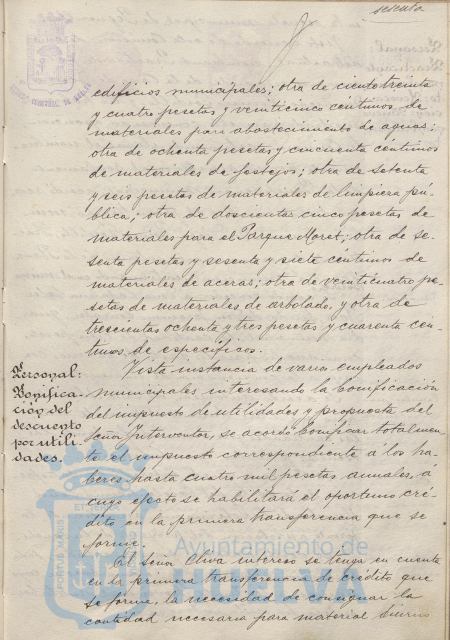 sesenta
edificios municipales; otra de ciento treinta
y cuatro pesetas y veinticinco centimos, de
materiales para abastecimiento de aguas;
otra de ochenta pesetas y cincuenta centimos
de materiales de festejos; otra de setenta
y seis pesetas de materiales de limpieza pú-
blica; otra de doscientas cinco pesetas de
materiales para el Parque Moret; otra de se-
senta pesetas y sesenta y siete centimos de
materiales de aceras; otra de veinticuatro pe-
setas de materiales de arbolado, y otra de
trescientas ochenta y tres pesetas y cuarenta cen-
timos, de especificos.
Personal:
Bonifica-
cion del
descuento
por utili-
dades.
Vista instancia de varios empleados
municipales interesando la bonificación
del impuesto de utilidades y propuesta del
Señor Interventor, se acordó bonificar totalmen-
te el impuesto correspondiente a los ha-
beres hasta cuatro mil pesetas anuales, á
cuyo efecto se habilitará el oportuno cré-
dito en la primera transferencia que se
forme.
El Señor Oliva interesó se tenga en cuenta
en la primera transferencia de crédito que
se forme, la necesidad de consignar la
cantidad necesaria para material
Ayuntamiento de